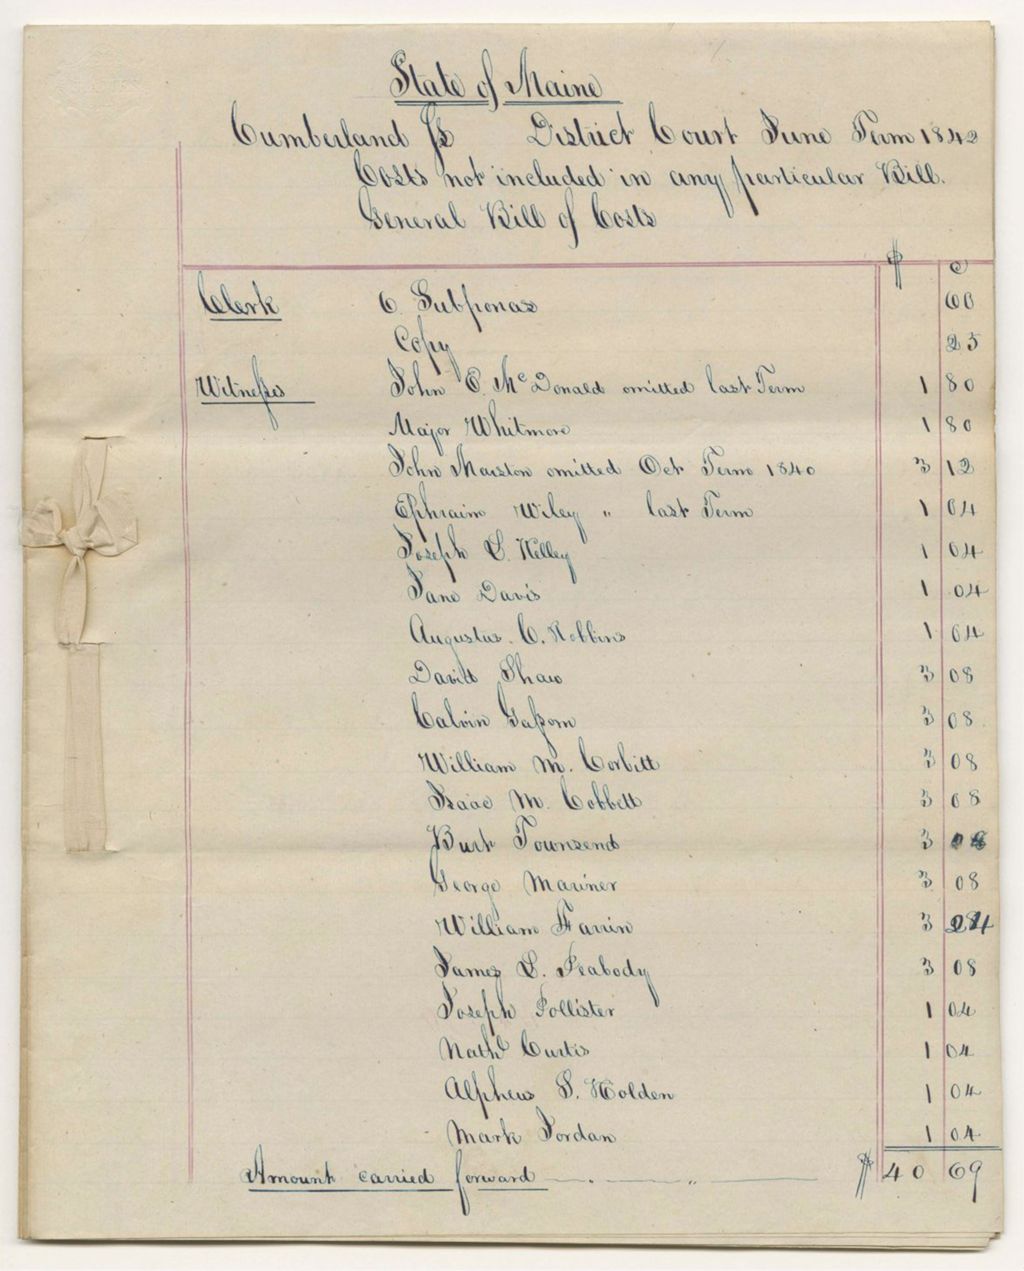 State of Maine
Cumberland Ss District Court June Term 1842
Costs not included in any particular Bill.
General Bill of Costs
$ c
Clerk 6 Subponas 60
Copy 25
Witneſses John C. Mc Donald omitted last Term 1 80
Major Whitmore 1 80
John Marston omitted Oct Term 1840 3 12
Ephraim Wiley " last Term 1 04
Joseph S. Kelley 1 04
Jane Davis 1 04
Augustus. C. Robbins 1 04
David Shaw 3 08
Calvin 3 08
William M. Corbitt 3 08
Isaac M. Cobbett 3 08
Burt Townsend 3 08
George Mariner 3 08
William Farrin 3
James S. Peabody 3 08
Joseph Pollister 1 04
Nathl Curtis 1 04
Alpheus S. Holden 1 04
Mark Jordan 1 04
Amount carried forward — . — " — $ 40 69